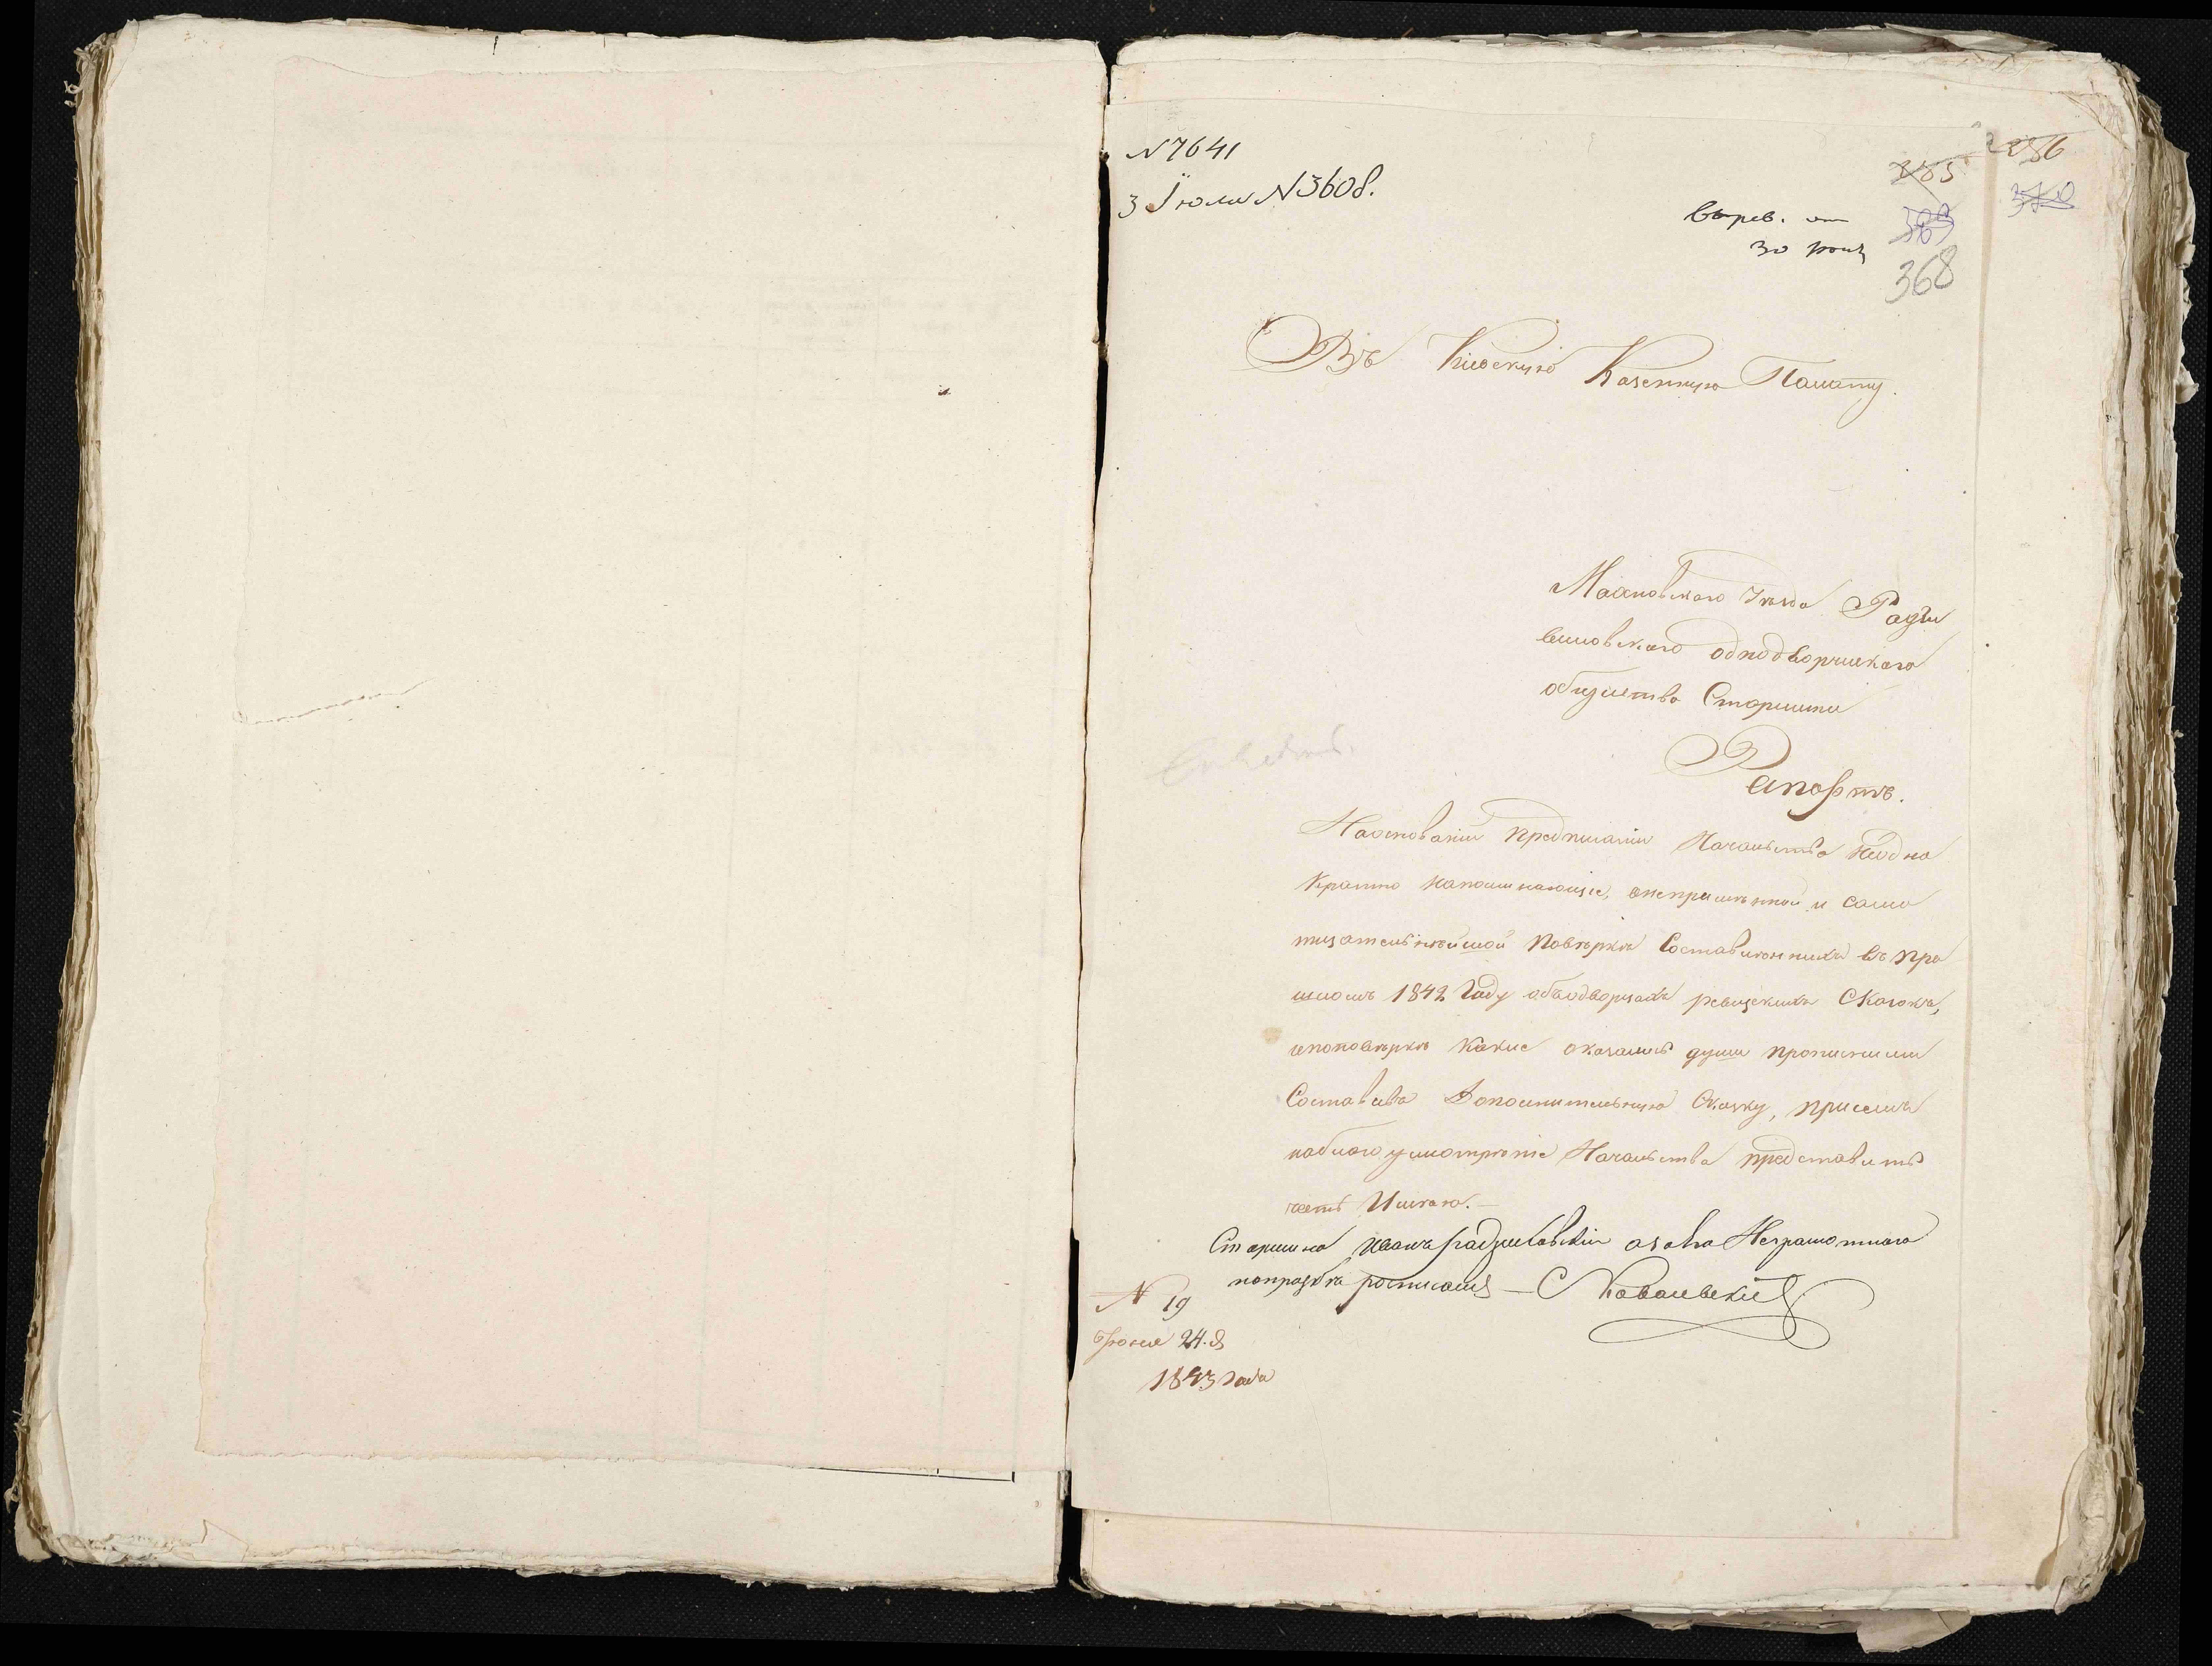 N 7641
3 Іюля N 3608.
285
286
въ рев. от
369
370
30 Іюня
368
Въ Кіевскую Казенную Палату.
Махновскаго Уезда Радзи
виловскаго однодворческаго
общества Старшины
Рапортъ.
Наосновании предписании Началства неодно
кратно напоминающіе, онепремѣнной и само
тщательнѣйшой повѣрки Составленныхъ въ про
шломъ 1842 Году ободворцахъ ревизскихъ Сказокъ,
ипоповѣрки какие оказались души прописными
Составивъ Дополнительную Сказку, присемъ
наблагоусмотреніе Началства представить
честь Имѣю.—
Старшина Иванъ Радзиевскій азаего Неграмотнаго
попрозбѣ росписался — С Ковалевскій
N 19
Іюня 24. д
1843 Года